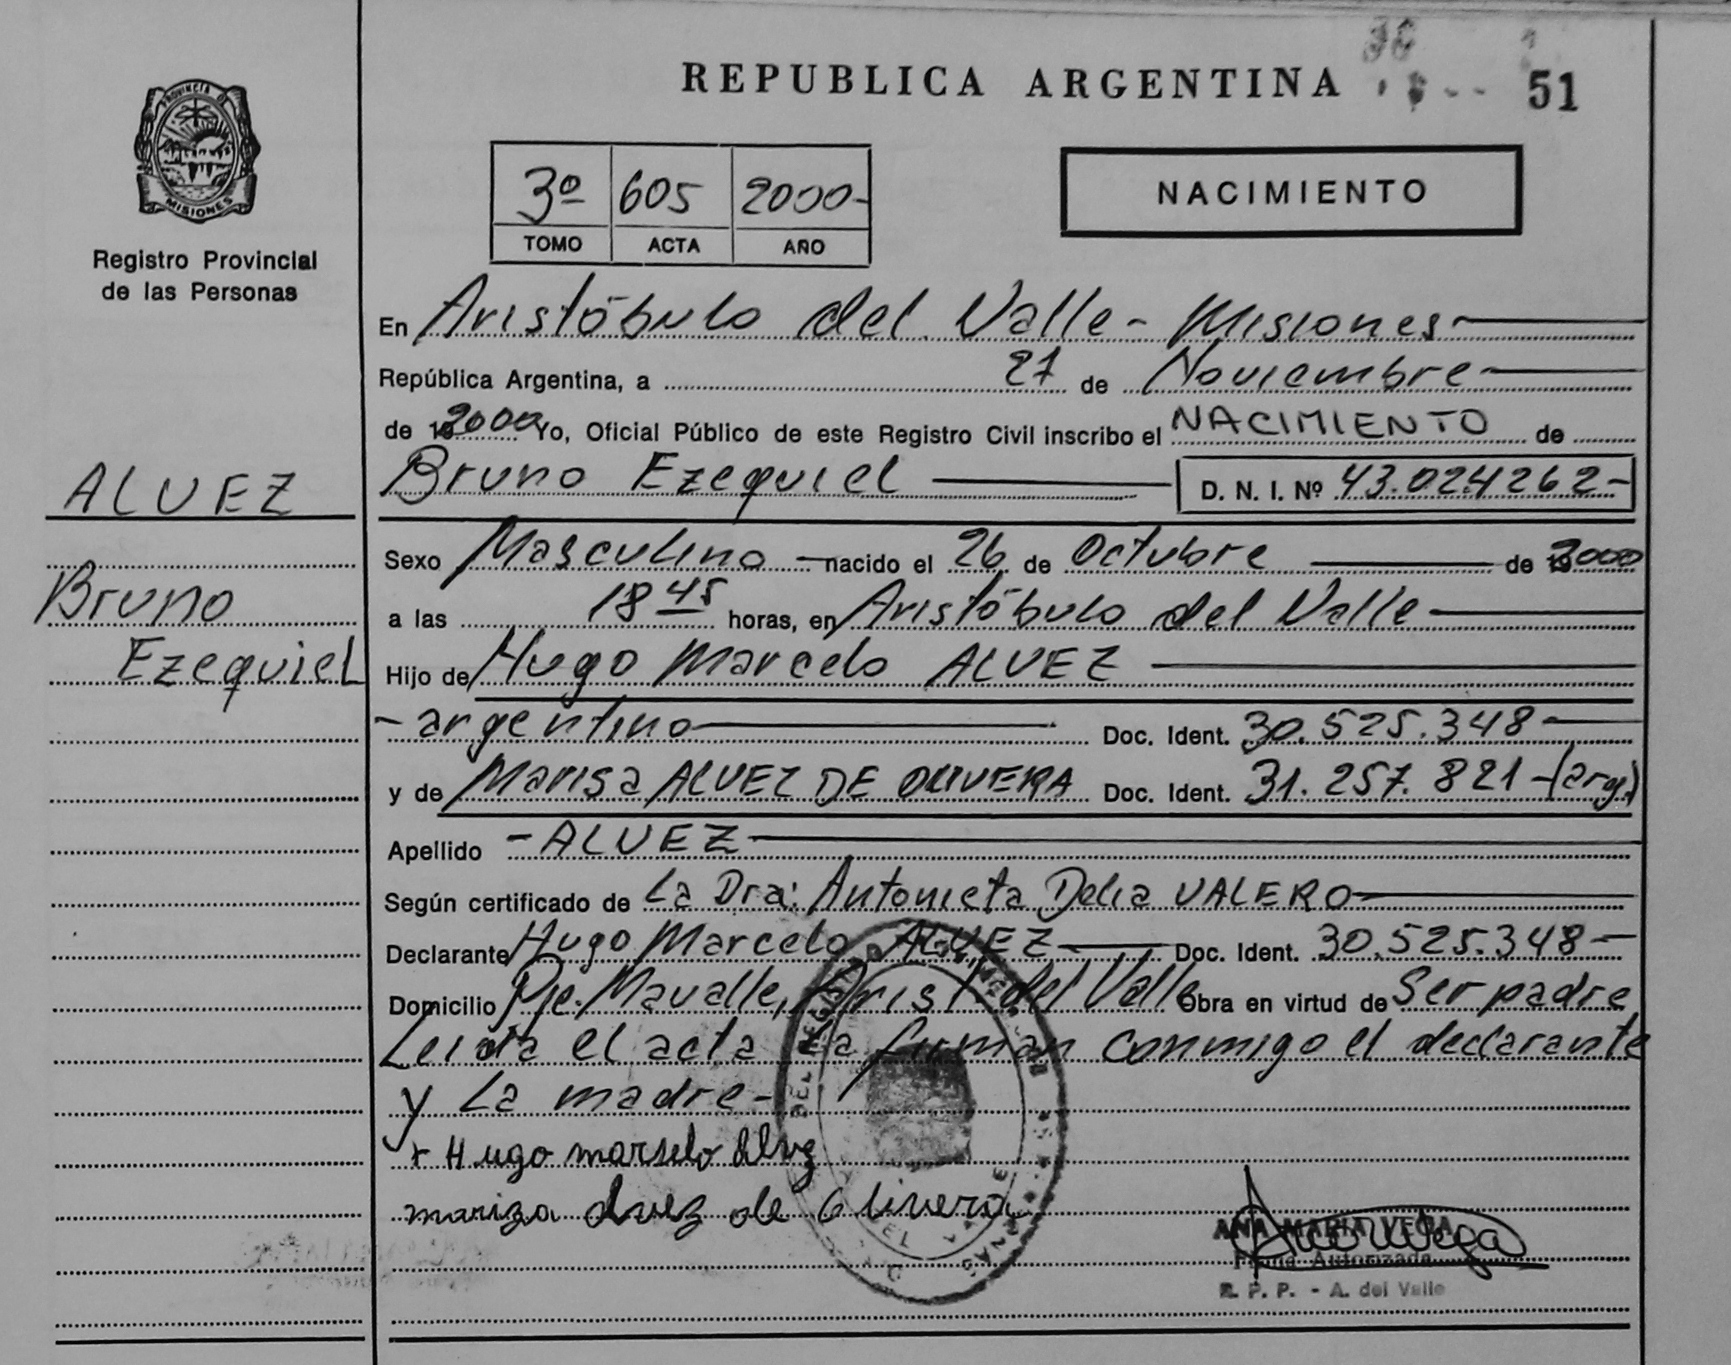 REPUBLICA ARGENTINA
51
PROVINCIA DE
MISIONES
Registro Provincial
de las Personas
3º 605 2000-
TOMO ACTA AÑO
NACIMIENTO
En Aristóbulo del Valle - Misiones
República Argentina, a 27 de Noviembre
de 2000 Yo, Oficial Público de este Registro Civil inscribo el NACIMIENTO de
ALVEZ
Bruno Ezequiel D. N. I. Nº 43.024.262-
Sexo Masculino nacido el 26 de Octubre de 2000
Bruno
a las 18 45 horas, en Aristóbulo del Valle
Ezequiel
Hijo de Hugo Marcelo ALVEZ
- argentino Doc. Ident. 30.525.348-
y de Marisa ALVEZ DE OLIVERA Doc. Ident. 31.257.821-(arg.)
Apellido - ALVEZ
Según certificado de La Dra: Antonieta Delia VALERO
Declarante Hugo Marcelo ALVEZ Doc. Ident. 30.525.348-
Domicilio Pje. Mavalle, Arist. del Valle Obra en virtud de Ser padre
Leida el acta la firman conmigo el declarante
y La madre-
+ Hugo marselo Alvez
mariza alvez de Olivera
ANA MARIA VEGA
Firma Autorizada
R. P. P. - A. del Valle